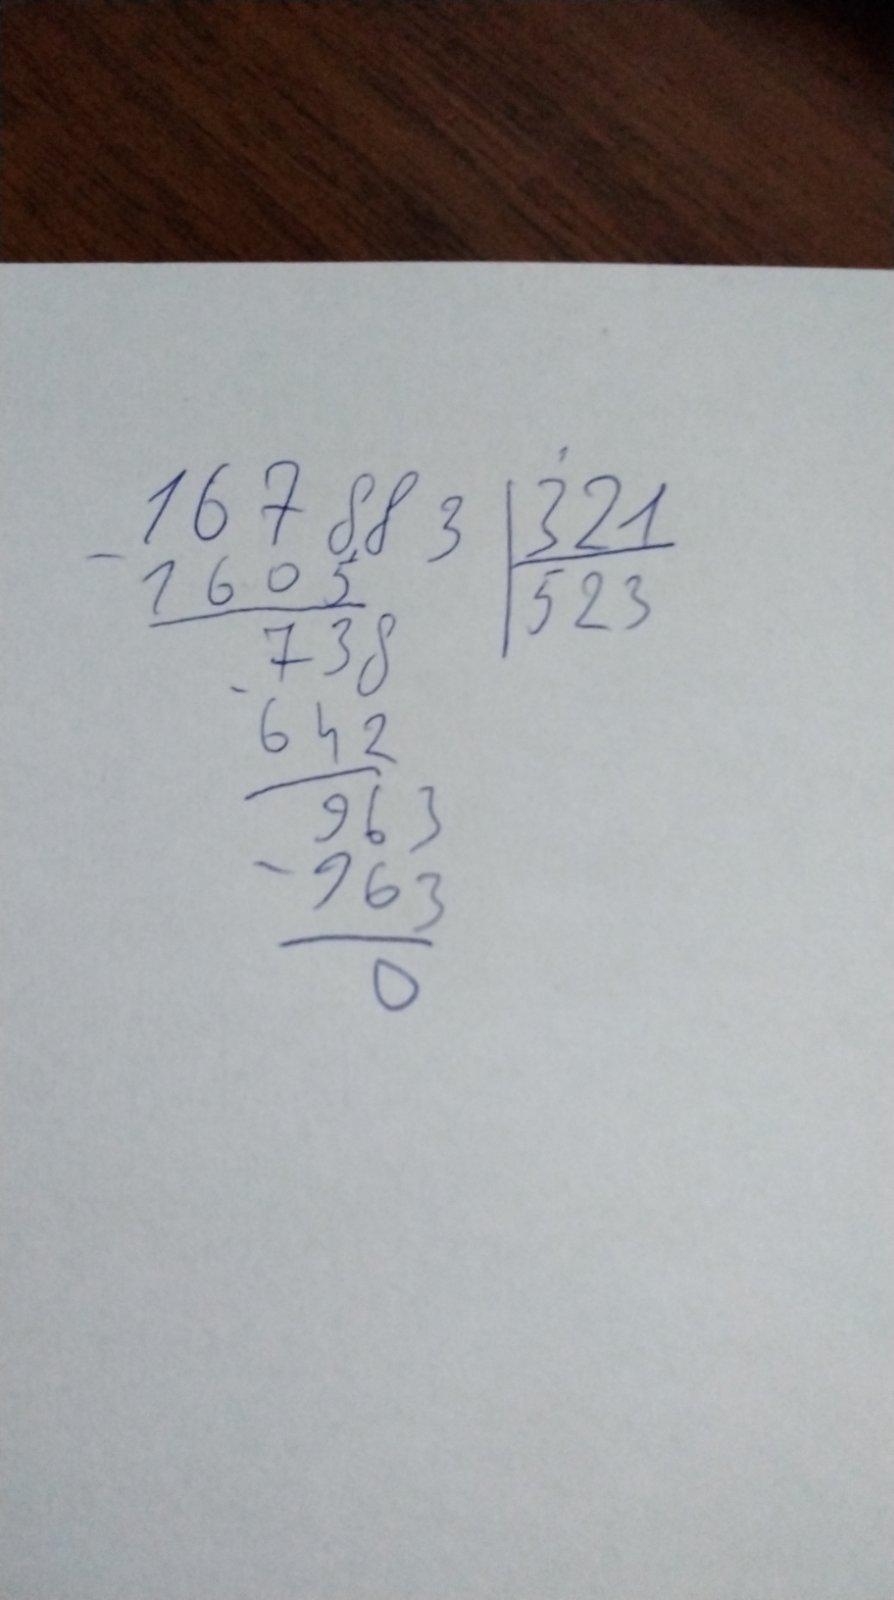 167883 321
- 1605 523
738
- 642
963
- 963
0